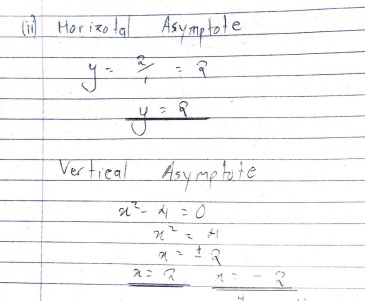 (ii) Horizotal Asymptote
y = 2/1 = 2
y = 2
Vertical Asymptote
x² - 4 = 0
x² = 4
x = ± 2
x = 2 x = - 2